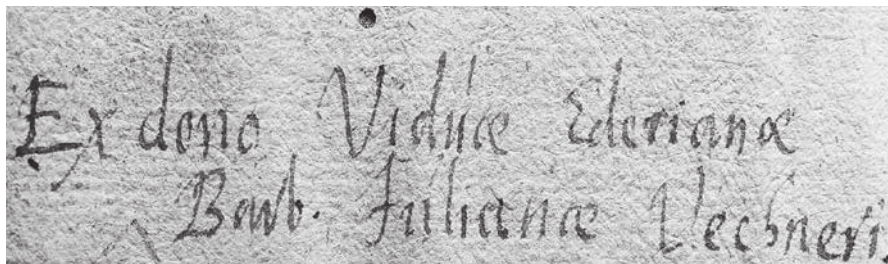 Ex dono Viduæ Ederianæ
Barb. Julianæ Vechneri